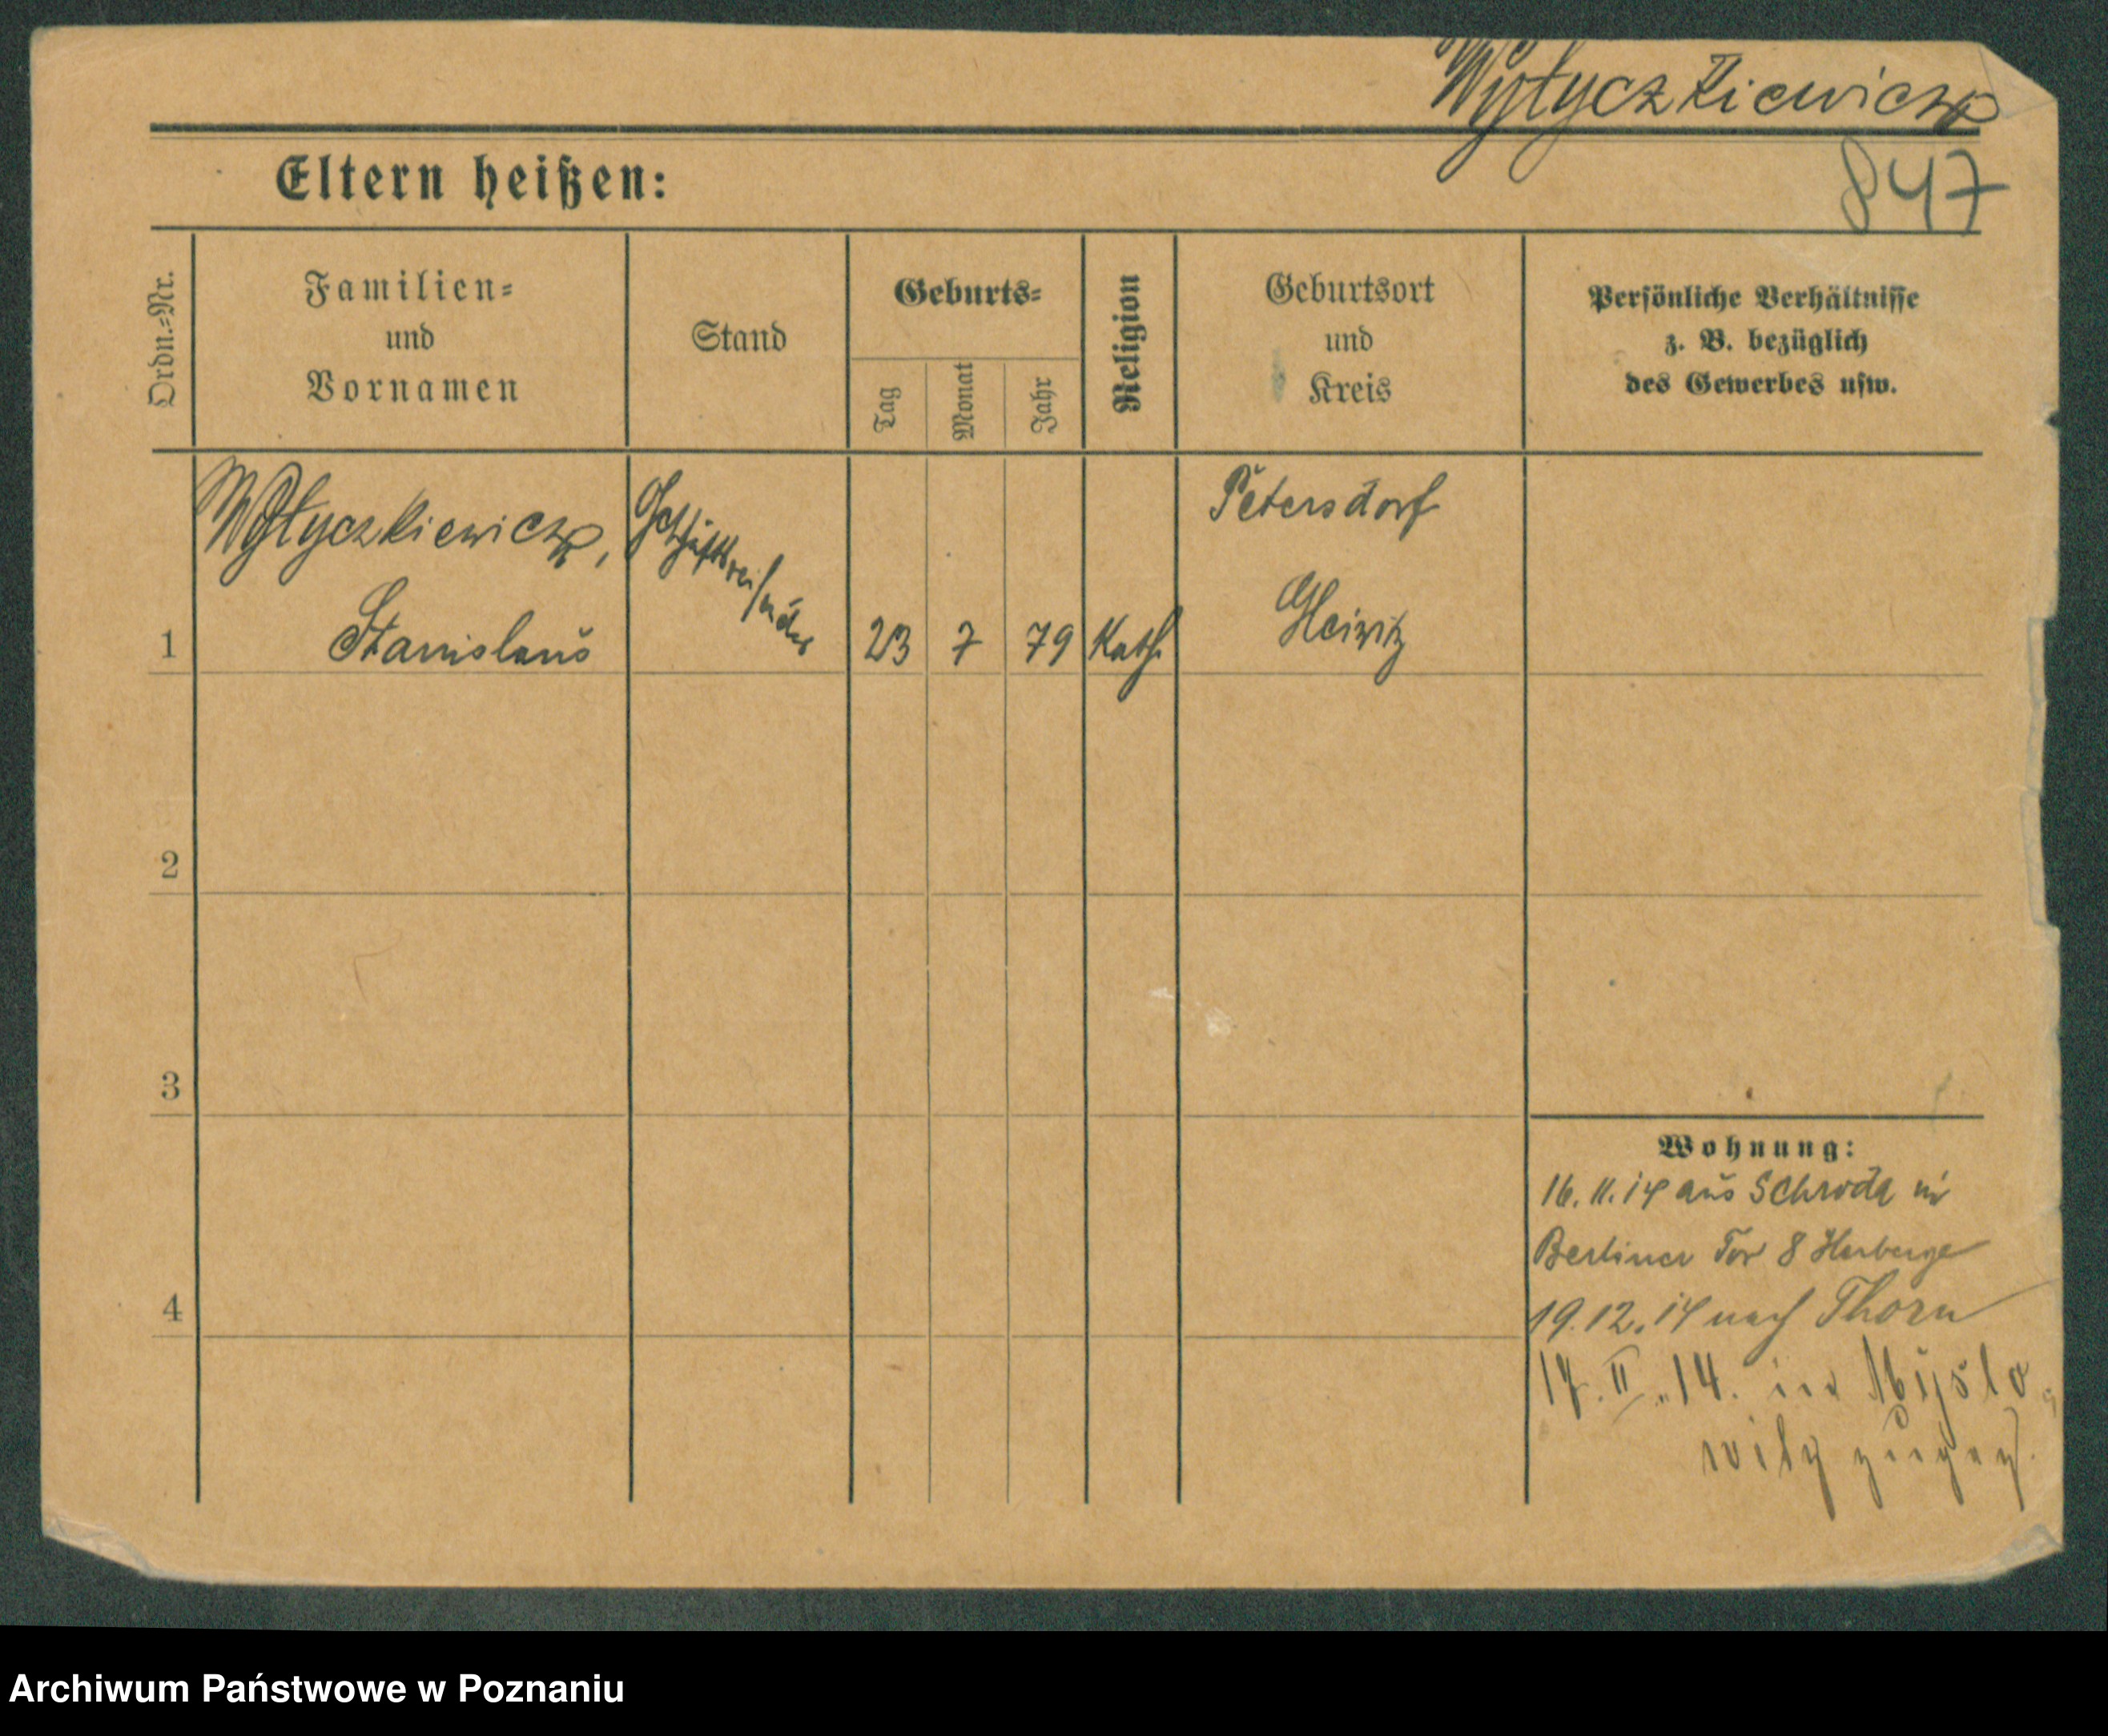 Wytyczkiewicz
847
Eltern heißen:
Ordn.-Nr.
Familien-
und
Vornamen
Stand
Geburts-
Tag
Monat
Jahr
Religion
Geburtsort
und
Kreis
Persönliche Verhältnisse
z. B. bezüglich
des Gewerbes usw.
1
Wytyczkiewicz,
Stanislaus
23
7
79
Kath.
Petersdorf
Gleiwitz
2
3
4
Wohnung:
16. 11. 14 aus Schroda in
Berliner Tor 8 Herberge
19.12.14 nach Thorn
14. in Myslo-
witz zugez.
Archiwum Państwowe w Poznaniu